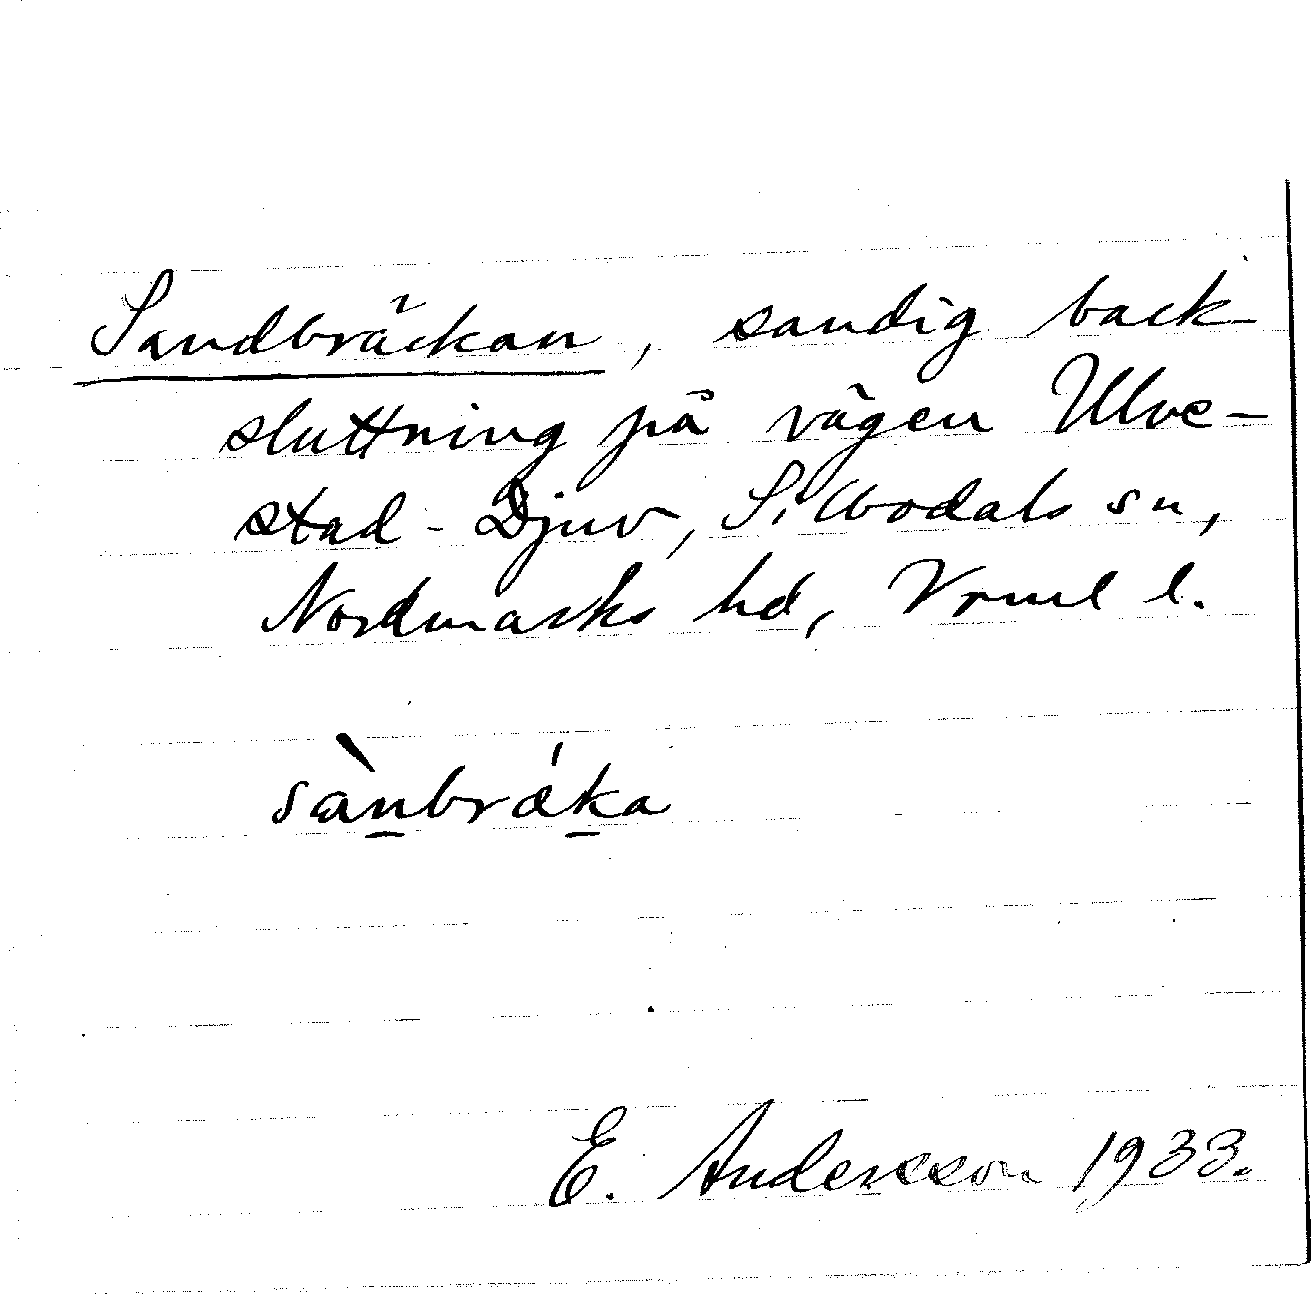 Sandbräckan, sandig back-
sluttning på vägen Ulve-
stad - Djuv, Sillbodals sn,
Nordmarks hd, Vrml l.
sànbrǽka
E. Andersson 1933.